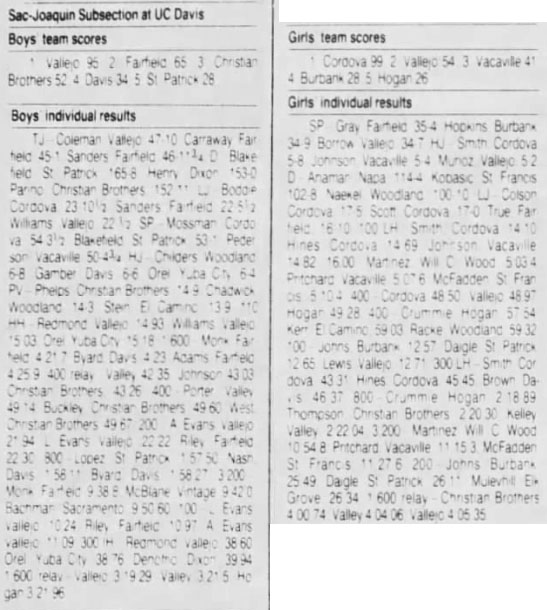 Sac-Joaquin Subsection at UC Davis
Boys' team scores
1. Vallejo 95 2. Fairfield 65 3. Christian
Brothers 52 4. Davis 34 5. St. Patrick 28
Boys' individual results
TJ - Coleman Vallejo 47-10 Carraway Fair
field 45-1 Sanders Fairfield 46-11¾ D - Blake
field St. Patrick 165-8 Henry Dixon 153-0
Parino Christian Brothers 152-11 LJ - Boddie
Cordova 23-10½ Sanders Fairfield 22-5½
Williams Vallejo 22-½ SP - Mossman Cordo
va 54-3½ Blakefield St. Patrick 53-1 Peder
son Vacaville 50-4¾ HJ - Childers Woodland
6-8 Gamber Davis 6-6 Orel Yuba City 6-4
PV - Phelps Christian Brothers 14-9 Chadwick
Woodland 14-3 Stein El Camino 13-9 110
HH - Redmond Vallejo 14.93 Williams Vallejo
15.03 Orel Yuba City 15.18 1,600 - Monk Fair
field 4:21.7 Byard Davis 4:23 Adams Fairfield
4:25.9 400 relay - Vallejo 42.35 Johnson 43.03
Christian Brothers 43.26 400 - Porter Valley
49.14 Buckley Christian Brothers 49.60 West
Christian Brothers 49.67 200 - A. Evans Vallejo
21.94 L. Evans Vallejo 22.22 Riley Fairfield
22.30 800 - Lopez St. Patrick 1:57.50 Nash
Davis 1:58.11 Byard Davis 1:58.27 3,200 -
Monk Fairfield 9:38.8 McBlane Vintage 9:42.0
Bachman Sacramento 9:50.60 100 - L. Evans
Vallejo 10.24 Riley Fairfield 10.97 A. Evans
Vallejo 11.09 300 IH - Redmond Vallejo 38.60
Orel Yuba City 38.76 Dixon 39.94
1,600 relay - Vallejo 3:19.29 Valley 3:21.5 Ho
gan 3:21.96
Girls' team scores
1. Cordova 99 2. Vallejo 54 3. Vacaville 41
4. Burbank 28 5. Hogan 26
Girls' individual results
SP - Gray Fairfield 35-4 Hopkins Burbank
34-9 Borrow Vallejo 34-7 HJ - Smith Cordova
5-8 Johnson Vacaville 5-4 Munoz Vallejo 5-2
D - Anamari Napa 114-4 Kobasic St. Francis
102-8 Naekel Woodland 100-10 LJ - Colson
Cordova 17-5 Scott Cordova 17-0 True Fair
field 16-10 100 LH - Smith Cordova 14.10
Hines Cordova 14.69 Johnson Vacaville
14.82 1,600 - Martinez Will C. Wood 5:03.4
Pritchard Vacaville 5:07.6 McFadden St. Fran
cis 5:10.4 400 - Cordova 48.50 Vallejo 48.97
Hogan 49.28 400 - Crummie Hogan 57.54
Kerr El Camino 59.03 Racke Woodland 59.32
100 - Johns Burbank 12.57 Daigle St. Patrick
12.65 Lewis Vallejo 12.71 300 LH - Smith Cor
dova 43.31 Hines Cordova 45.45 Brown Da-
vis 46.37 800 - Crummie Hogan 2:18.89
Thompson Christian Brothers 2:20.30 Kelley
Valley 2:22.04 3,200 - Martinez Will C. Wood
10:54.8 Pritchard Vacaville 11:15.3 McFadden
St. Francis 11:27.6 200 - Johns Burbank
25.49 Daigle St. Patrick 26.11 Mulevhill Elk
Grove 26.34 1,600 relay - Christian Brothers
4:00.74 Valley 4:04.06 Vallejo 4:05.35